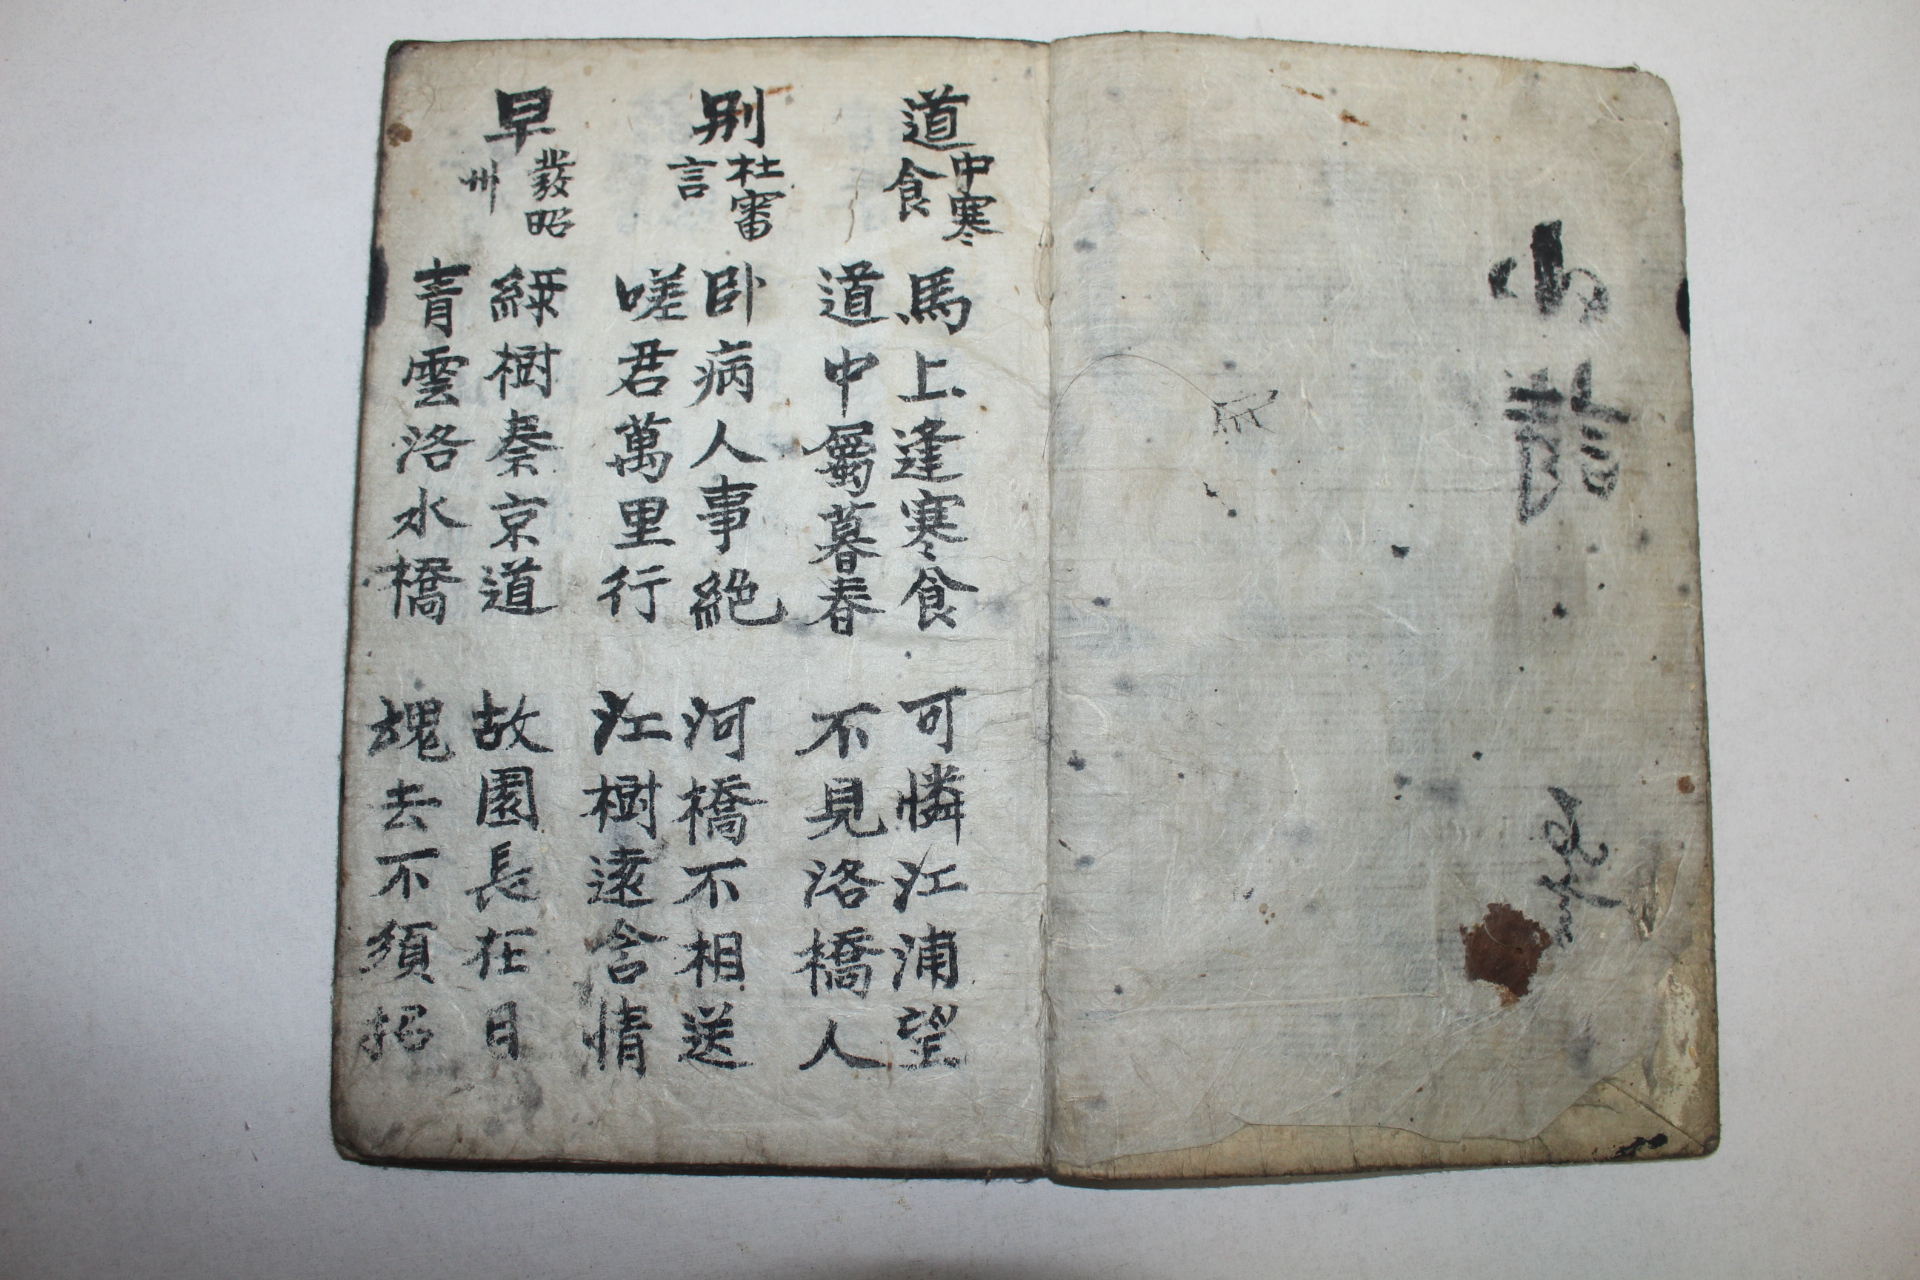 道中寒食
馬上逢寒食
可憐江浦望
道中屬暮春
不見洛橋人
別杜審言
卧病人事絶
河橋不相送
嗟君萬里行
江樹遠含情
早發昭州
綠樹秦京道
故園長在目
青雲洛水橋
魂去不須招